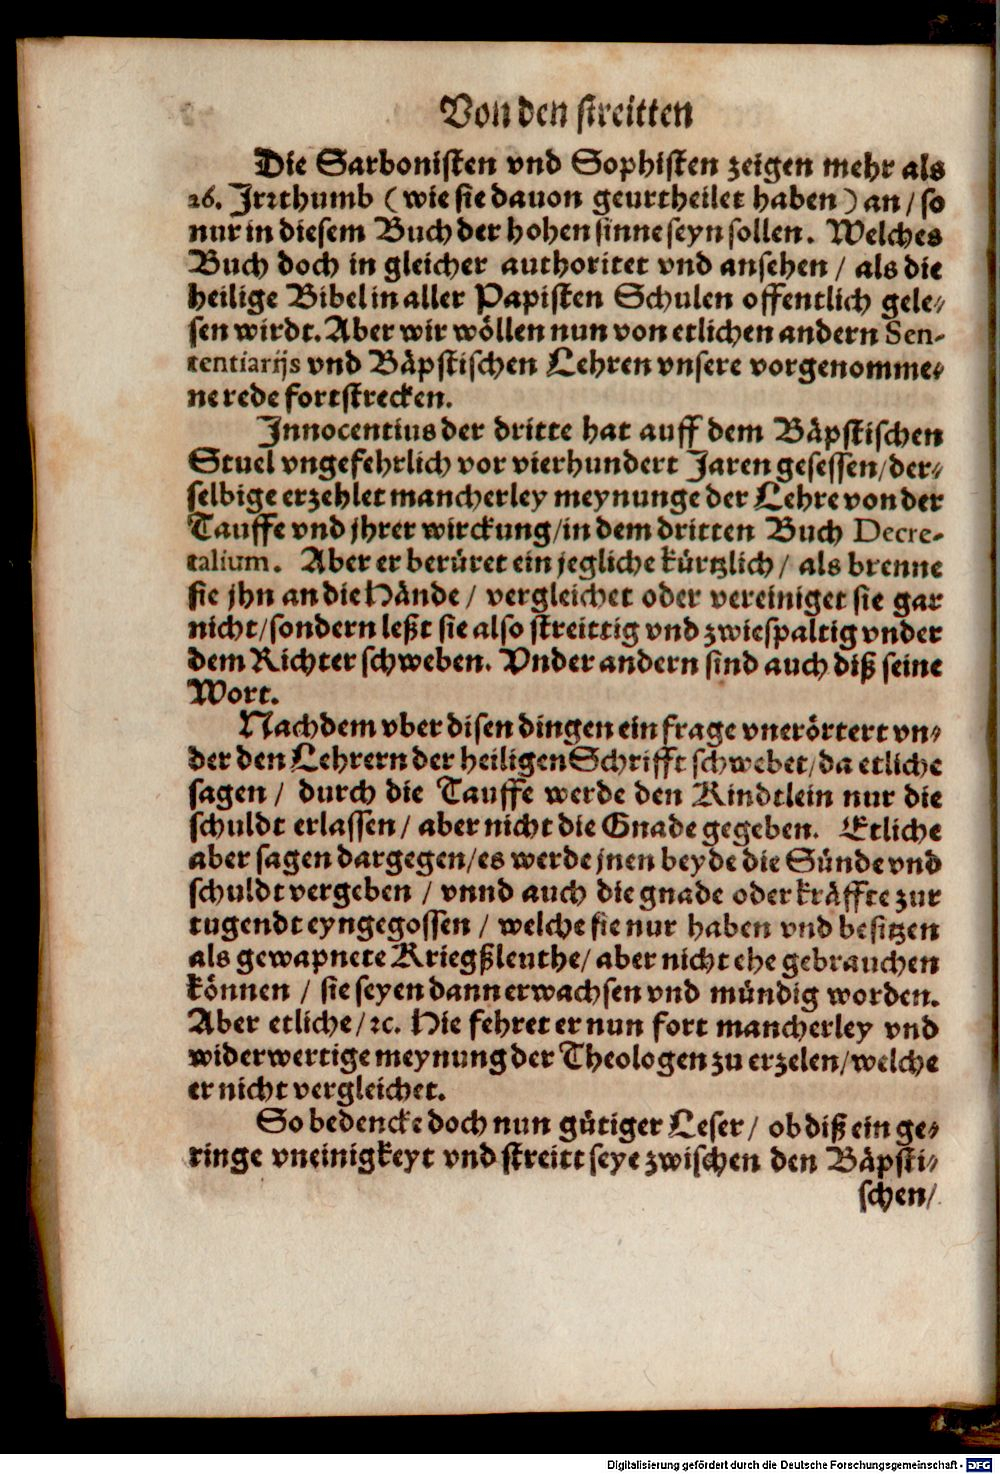 Von den streitten
Die Sarbonisten vnd Sophisten zeigen mehr als
26. Jrrthumb (wie sie dauon geurtheilet haben) an / so
nur in diesem Buch der hohen sinne seyn sollen. Welches
Buch doch in gleicher authoritet vnd ansehen / als die
heilige Bibel in aller Papisten Schulen offentlich gele-
sen wirdt. Aber wir wöllen nun von etlichen andern Sen-
tentiarijs vnd Bäpstischen Lehren vnsere vorgenomme-
ne rede fortstrecken.
Jnnocentius der dritte hat auff dem Bäpstischen
Stuel vngefehrlich vor vierhundert Jaren gesessen/ der-
selbige erzehlet mancherley meynunge der Lehre von der
Tauffe vnd jhrer wirckung/in dem dritten Buch Decre-
talium. Aber er berüret ein jegliche kürtzlich / als brenne
sie jhn an die Hände / vergleichet oder vereiniget sie gar
nicht/sondern leßt sie also streittig vnd zwiespaltig vnder
dem Richter schweben. Vnder andern sind auch diß seine
Wort.
Nachdem vber disen dingen ein frage vnerörtert vn-
der den Lehrern der heiligen Schrifft schwebet/da etliche
sagen / durch die Tauffe werde den Kindtlein nur die
schuldt erlassen/ aber nicht die Gnade gegeben. Etliche
aber sagen dargegen/es werde jnen beyde die Sünde vnd
schuldt vergeben / vnnd auch die gnade oder kräffte zur
tugendt eyngegossen / welche sie nur haben vnd besitzen
als gewapnete Kriegßleuthe/ aber nicht ehe gebrauchen
können / sie seyen dann erwachsen vnd mündig worden.
Aber etliche/ꝛc. Hie fehret er nun fort mancherley vnd
widerwertige meynung der Theologen zu erzelen/welche
er nicht vergleichet.
So bedencke doch nun gütiger Leser/ ob diß ein ge-
ringe vneinigkeyt vnd streitt seye zwischen den Bäpsti-
schen/
Digitalisierung gefördert durch die Deutsche Forschungsgemeinschaft - DFG